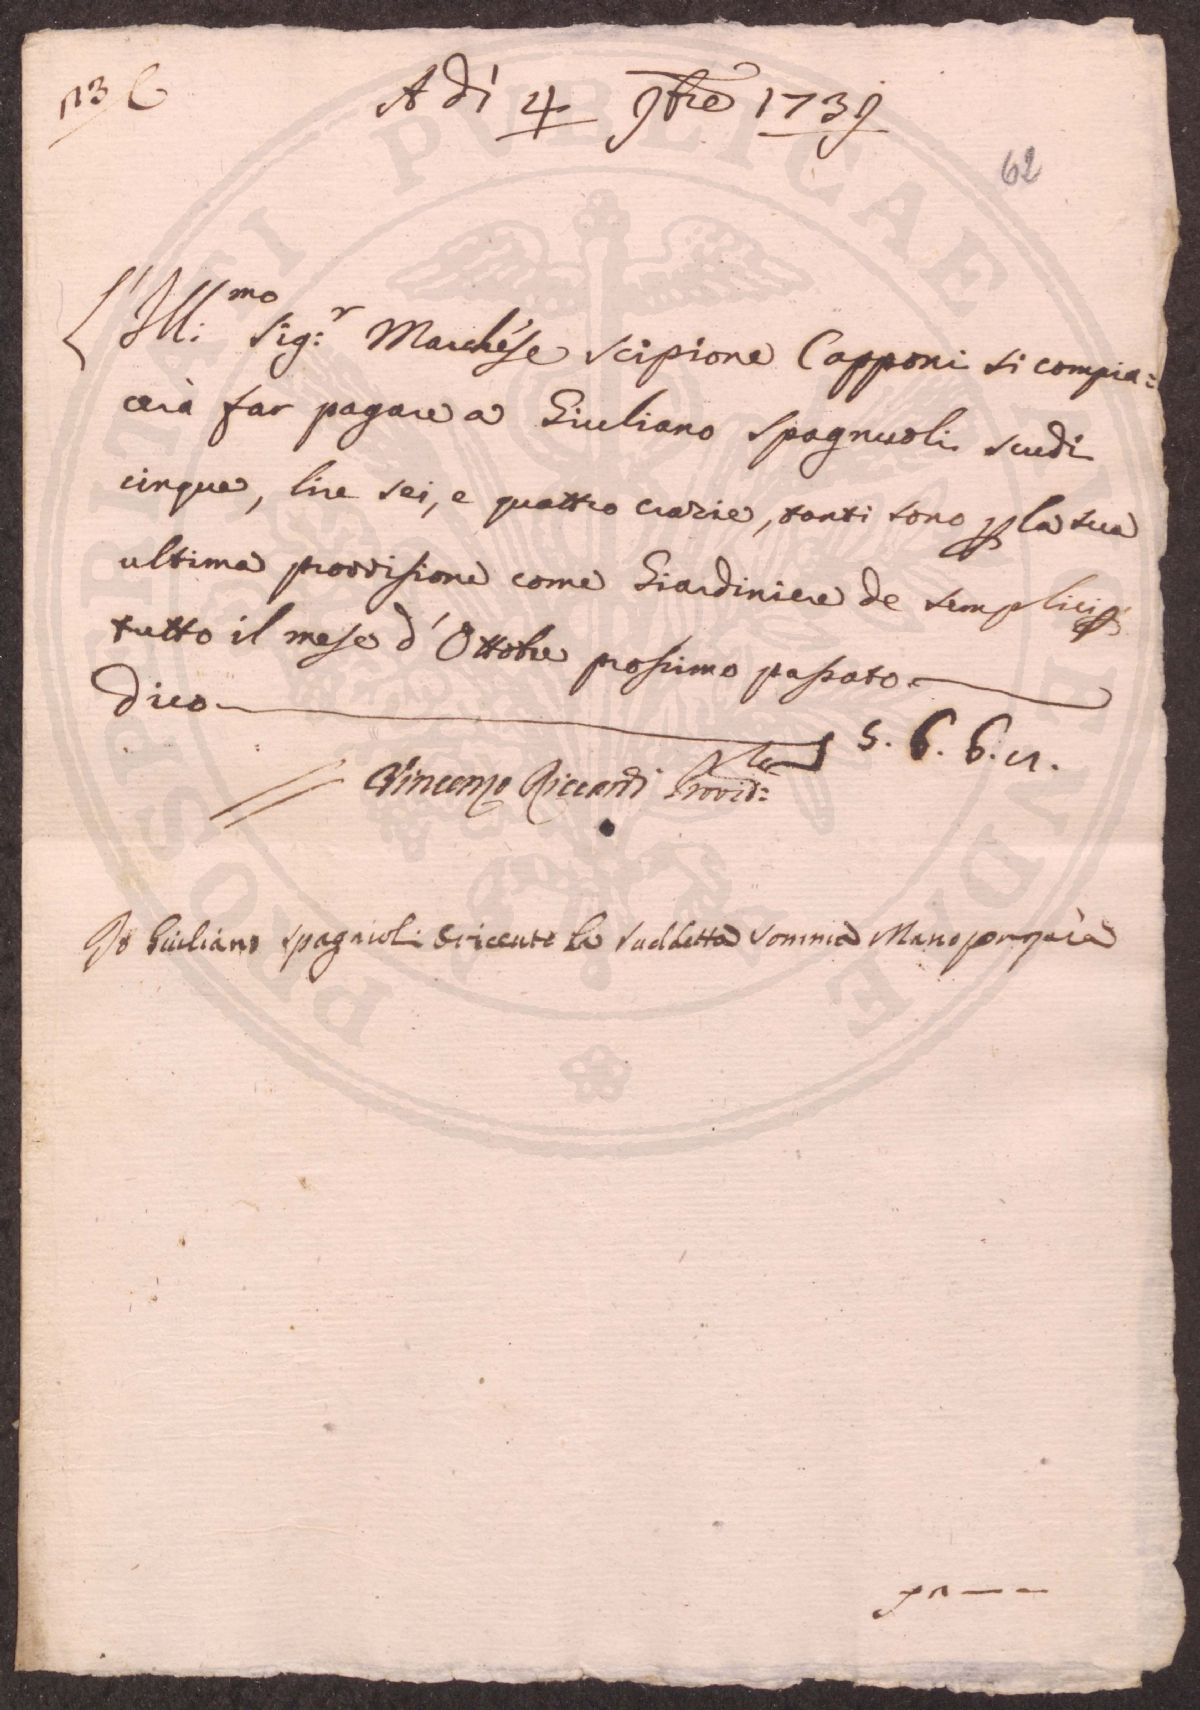 A dì 4 9bre 1739
62
L'Ill:mo Sig:r Marchése Scipione Capponi si compia=
cerà far pagare a Giuliano Spagnuoli scudi
cinque, lire sei, e quattro crazie, tanti sono p la sua
ultima provvisione come Giardiniere de semplici p
tutto il mese d'Ottobre prossimo passato
dico 5. 6. 6. 8.
Vincenzo Riccardi Provid:re
Io Giuliano Spagnioli o riceuto la suddetta somma Mano propria
PROSPERITATI PUBLICAE PROVIDAE